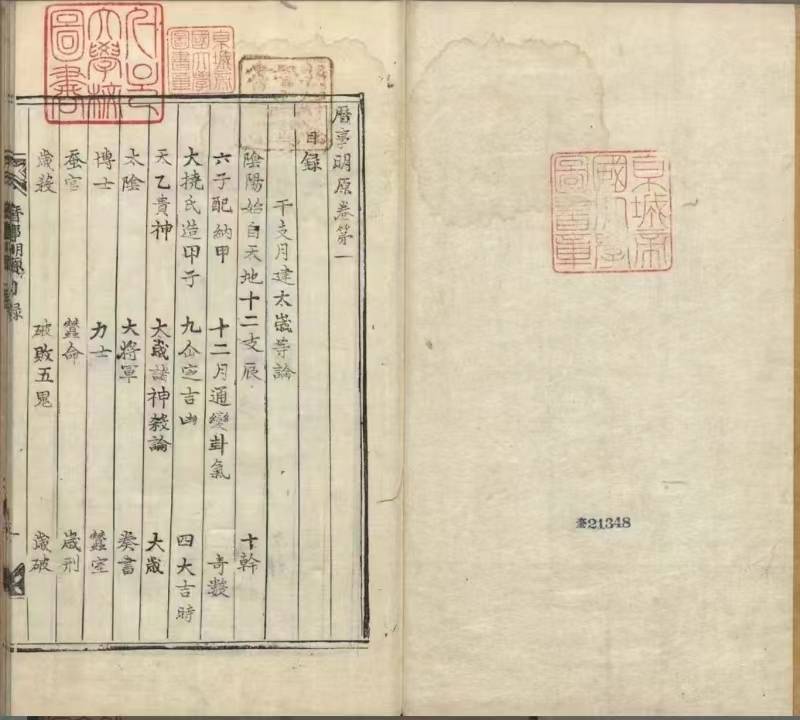 京城帝
國大學
圖書章
奎21348
서울
大學校
圖書
京城帝
國大學
圖書章
曆事明原卷第一
目錄
干支月建太歲等論
陰陽始自天地 十二支辰 十幹
六子配納甲 十二月通變卦氣 奇數
大撓氏造甲子 九仚定吉凶 四大吉時
天乙貴神 太歲諸神殺論 大歲
太陰 大將軍 奏書
博士 力士 蠶室
蚕官 蠶命 歲刑
歲殺 破敗五鬼 歲破
曆事明原目錄